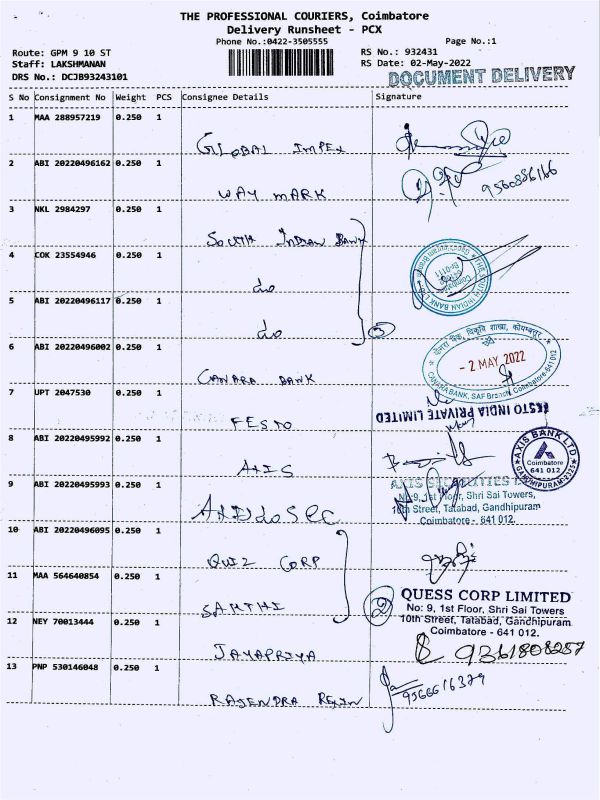 THE PROFESSIONAL COURIERS, Coimbatore
Delivery Runsheet - PCX
Phone No.:0422-3505555
Page No.:1
Route: GPM 9 10 ST
RS No.: 932431
Staff: LAKSHMANAN
RS Date: 02-May-2022
DRS No.: DCJB93243101
DOCUMENT DELIVERY
S No Consignment No Weight PCS Consignee Details Signature
1 MAA 288957219 0.250 1
GLOBAL IMPEX
2 ABI 20220496162 0.250 1
WAY MARK
9560886166
3 NKL 2984297 0.250 1
SOUTH INDIAN BANK
4 COK 23554946 0.250 1
do
THE SOUTH INDIAN BANK LTD
5 ABI 20220496117 0.250 1
do
3
6 ABI 20220496002 0.250 1
CANARA BANK
केनरा बैंक, विकृवि शाखा, कोयम्बत्तूर
- 2 MAY 2022
CANARA BANK, SAF Branch, Coimbatore-641 012
7 UPT 2047530 0.250 1
FESTO
FESTO INDIA PRIVATE LIMITED
8 ABI 20220495992 0.250 1
AXIS
AXIS BANK LTD
Coimbatore
641 012
GANDHIPURAM-2325
9 ABI 20220495993 0.250 1
AXIS SECURITIES
No-9, 1st Floor, Shri Sai Towers,
10th Street, Tatabad, Gandhipuram
Coimbatore - 641 012.
10 ABI 20220496095 0.250 1
QUIZ CORP
11 MAA 564640854 0.250 1
SAKTHI
2
QUESS CORP LIMITED
No: 9, 1st Floor, Shri Sai Towers
10th Street, Tatabad, Gandhipuram
Coimbatore - 641 012.
12 NEY 70013444 0.250 1
JAYAPRIYA
9361808257
13 PNP 530146048 0.250 1
RAJENDRA
9566616379